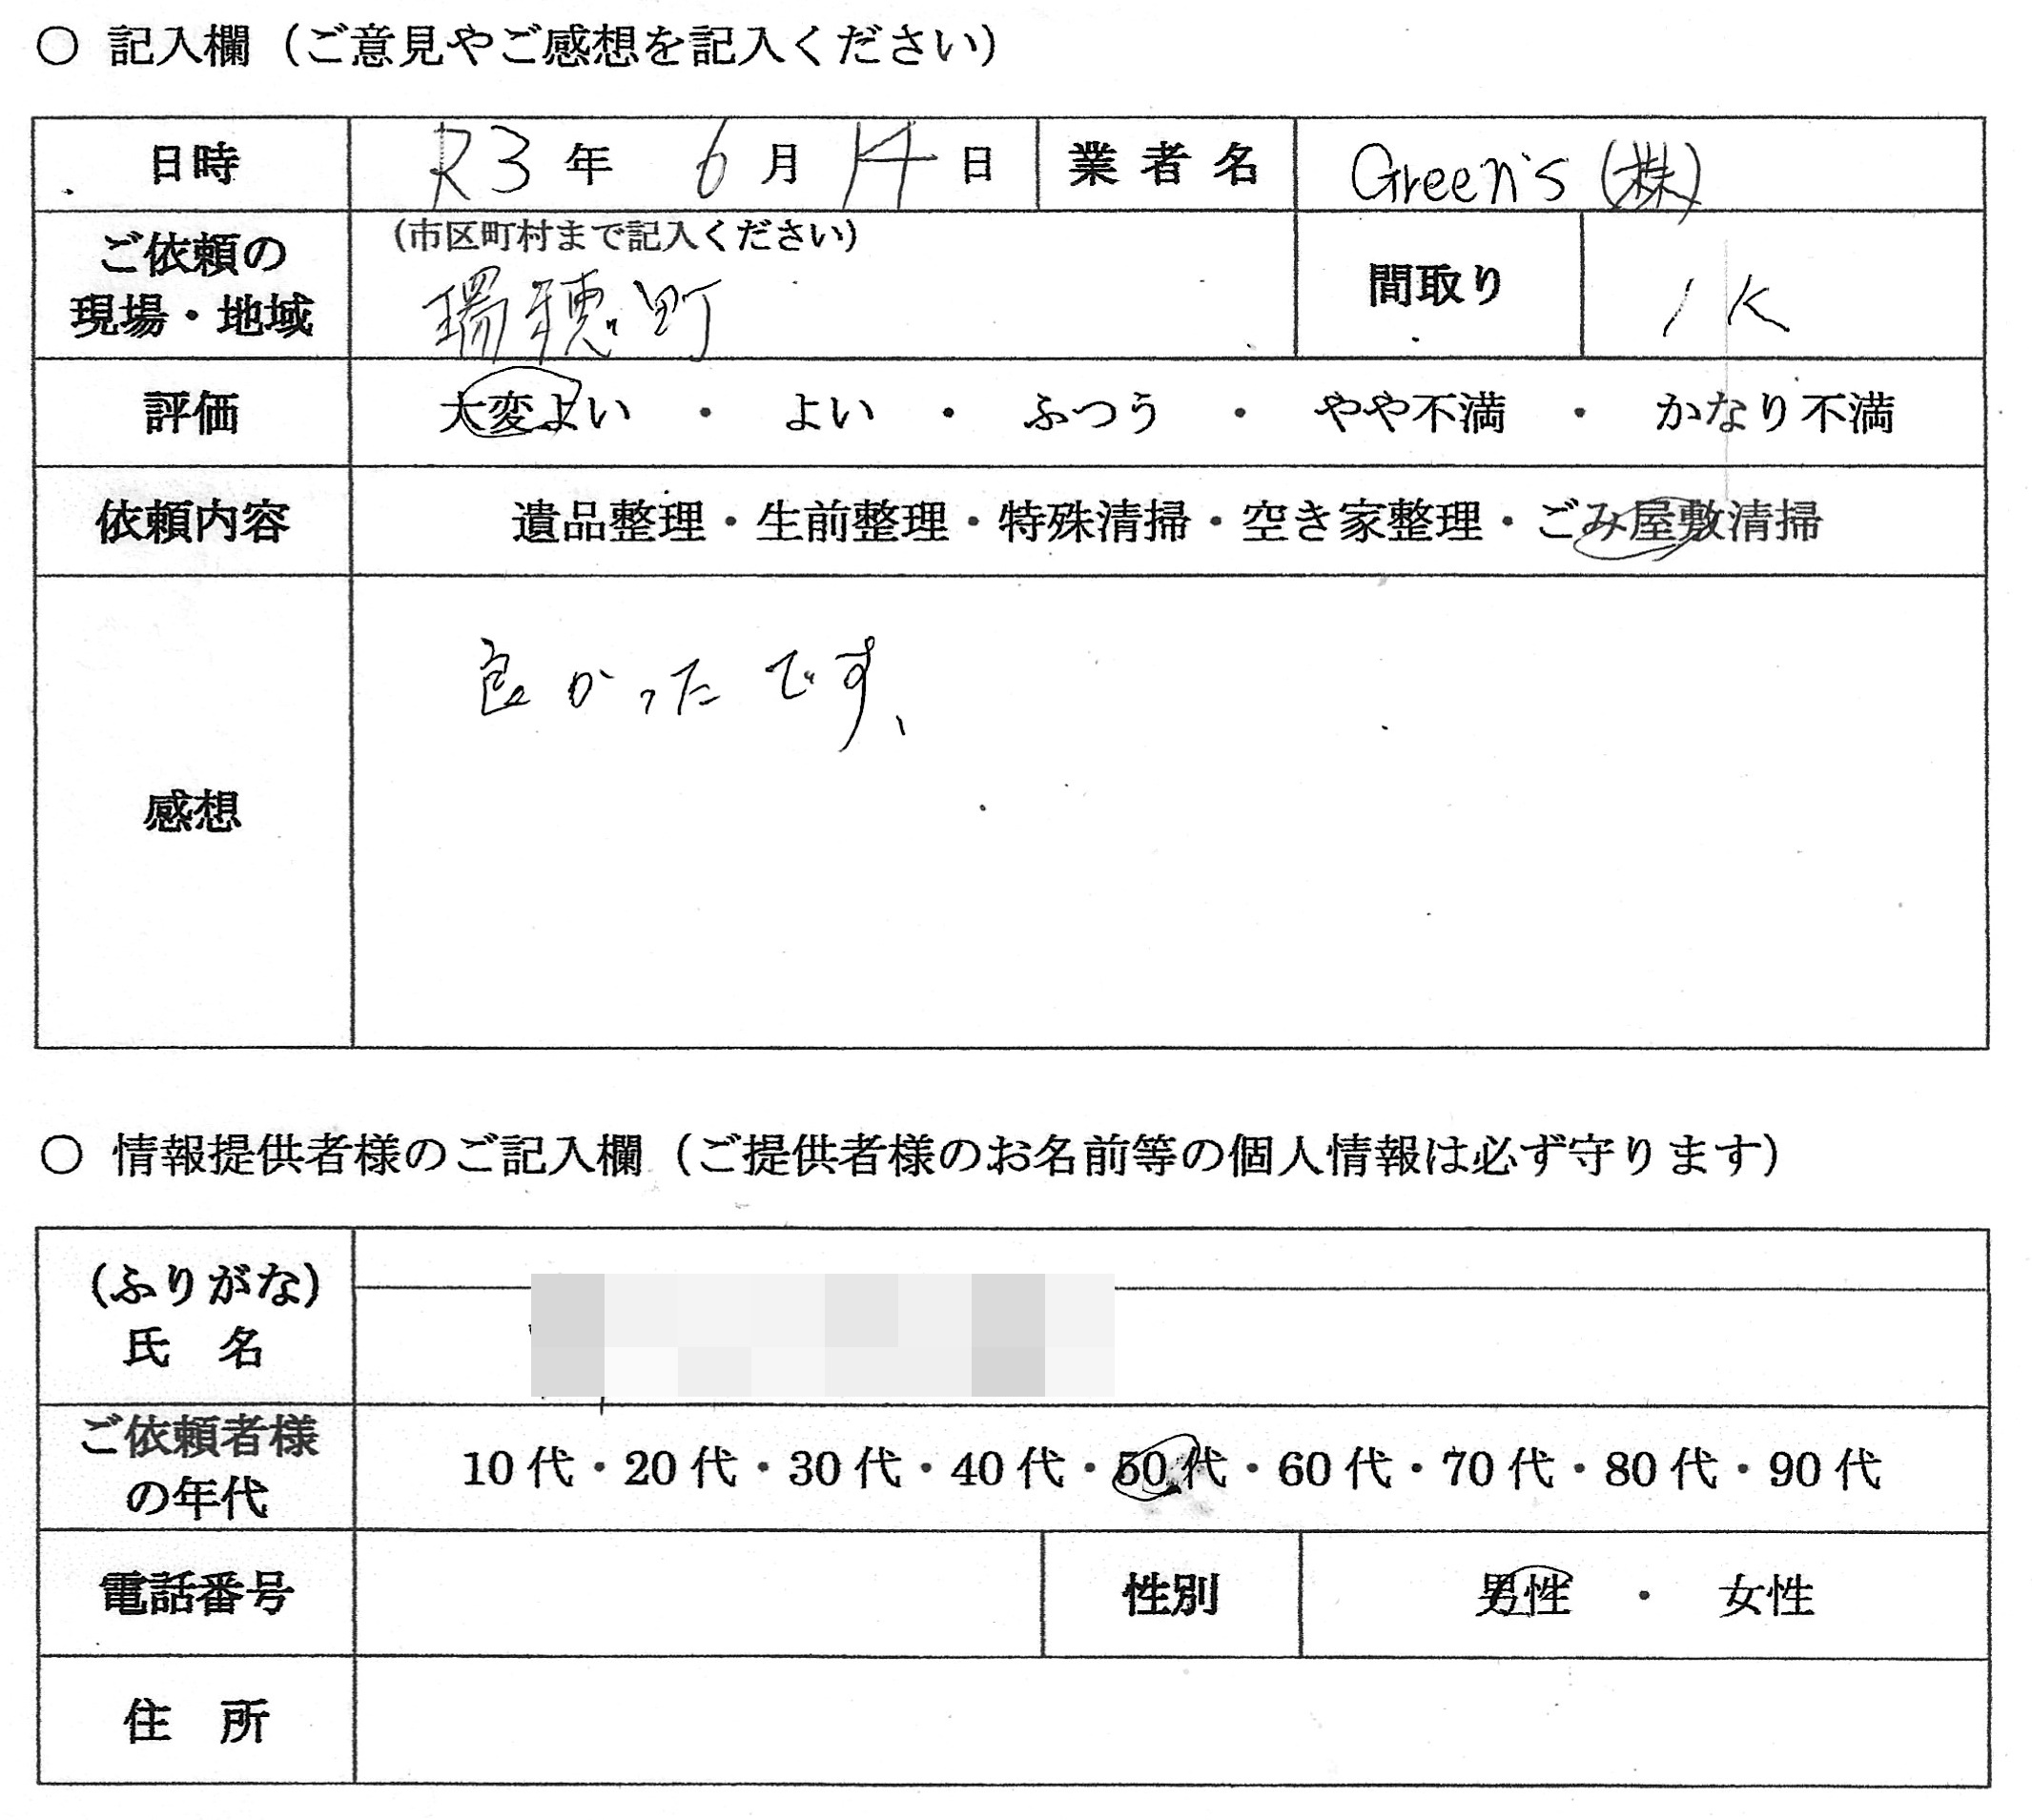 ○ 記入欄（ご意見やご感想を記入ください）
日時 R3年 6月 14日 業者名 Green's (株)
ご依頼の現場・地域 （市区町村まで記入ください） 間取り 1K
瑞穂町
評価 大変よい ・ よい ・ ふつう ・ やや不満 ・ かなり不満
依頼内容 遺品整理・生前整理・特殊清掃・空き家整理・ごみ屋敷清掃
感想 良かったです、
○ 情報提供者様のご記入欄（ご提供者様のお名前等の個人情報は必ず守ります）
（ふりがな）
氏 名
ご依頼者様の年代 10代・20代・30代・40代・50代・60代・70代・80代・90代
電話番号 性別 男性 ・ 女性
住 所